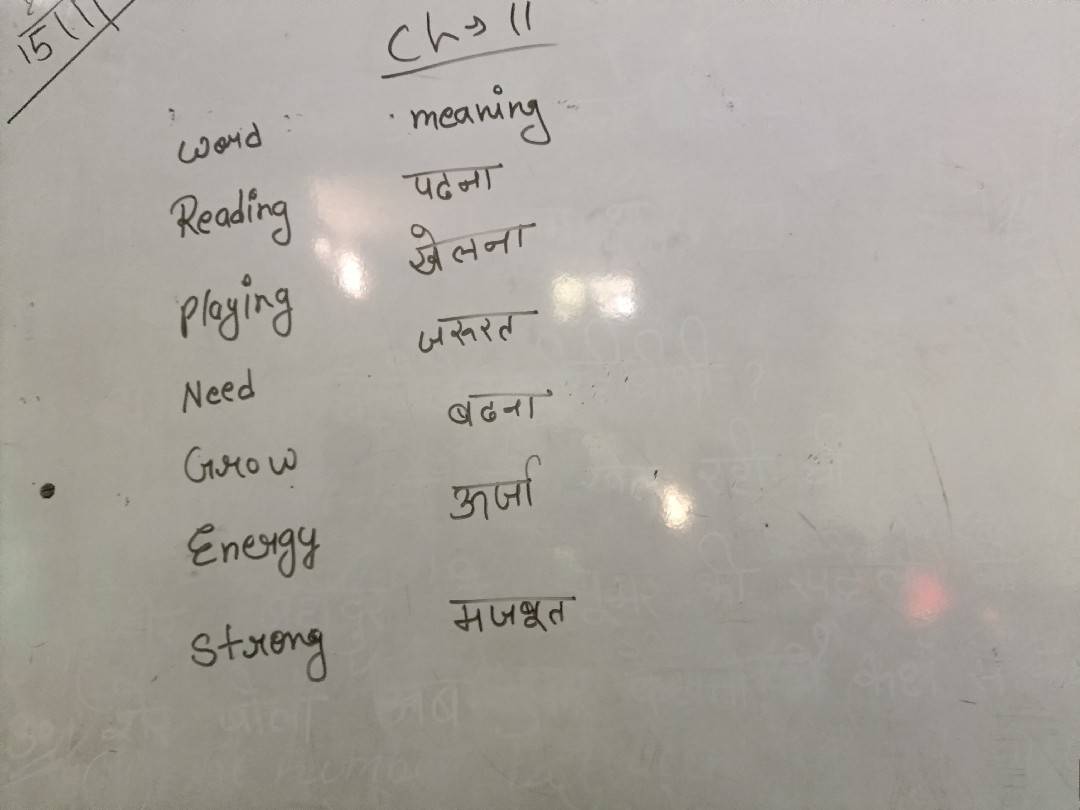 15/11
Ch→ 11
word meaning
Reading पढना
Playing खेलना
Need जरूरत
Grow बढना
Energy ऊर्जा
Strong मजबूत